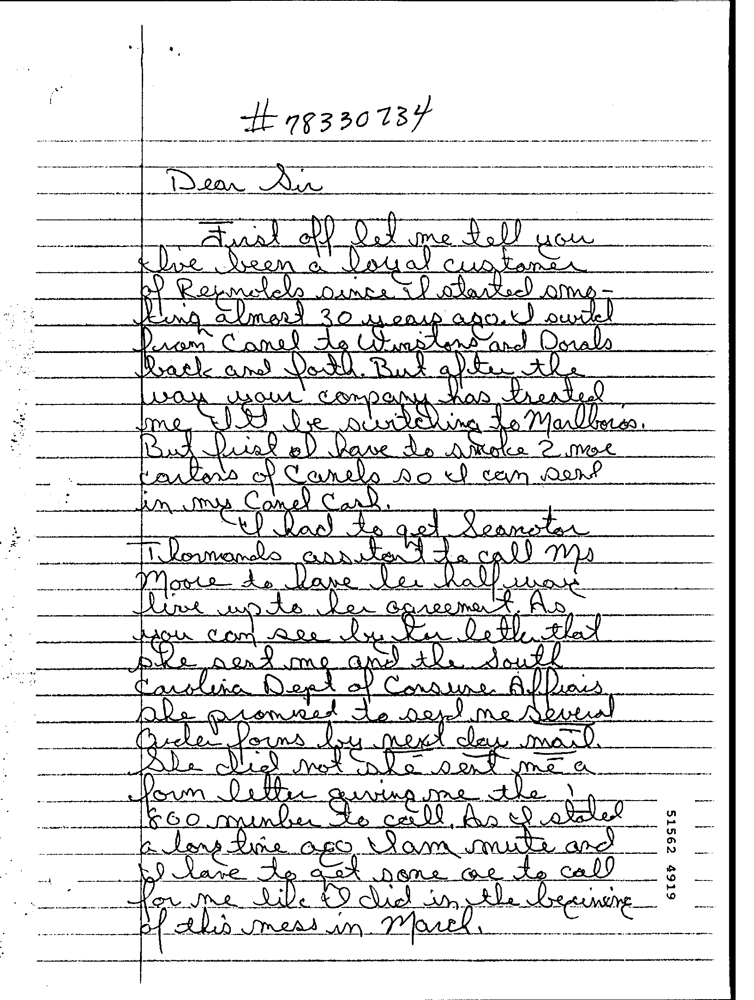 #78330734
Dear Sir
First off let me tell you
I've been a loyal customer
of Reynolds since I started smo-
king almost 30 years ago. I switch
from Camel to Winstons and Dorals
back and forth. But after the
way your company has treated
me I'll be switching to Marlboros.
But first I have to smoke 2 more
cartons of Camels so I can send
in my Camel Cash.
I had to get Seanotor
Thormonds assitant to call Ms
Moore to have her half way
live up to her agreement. As
you can see by her letter that
she sent me and the South
Carolina Dept of Consume Affiais
she promised to send me several
order forms by next day mail.
She did not she sent me a
form letter giving me the 1
800 number to call. As I stated
a long time ago I am mute and
I have to get some one to call
for me like I did in the begining
of this mess in March.
51562 4919